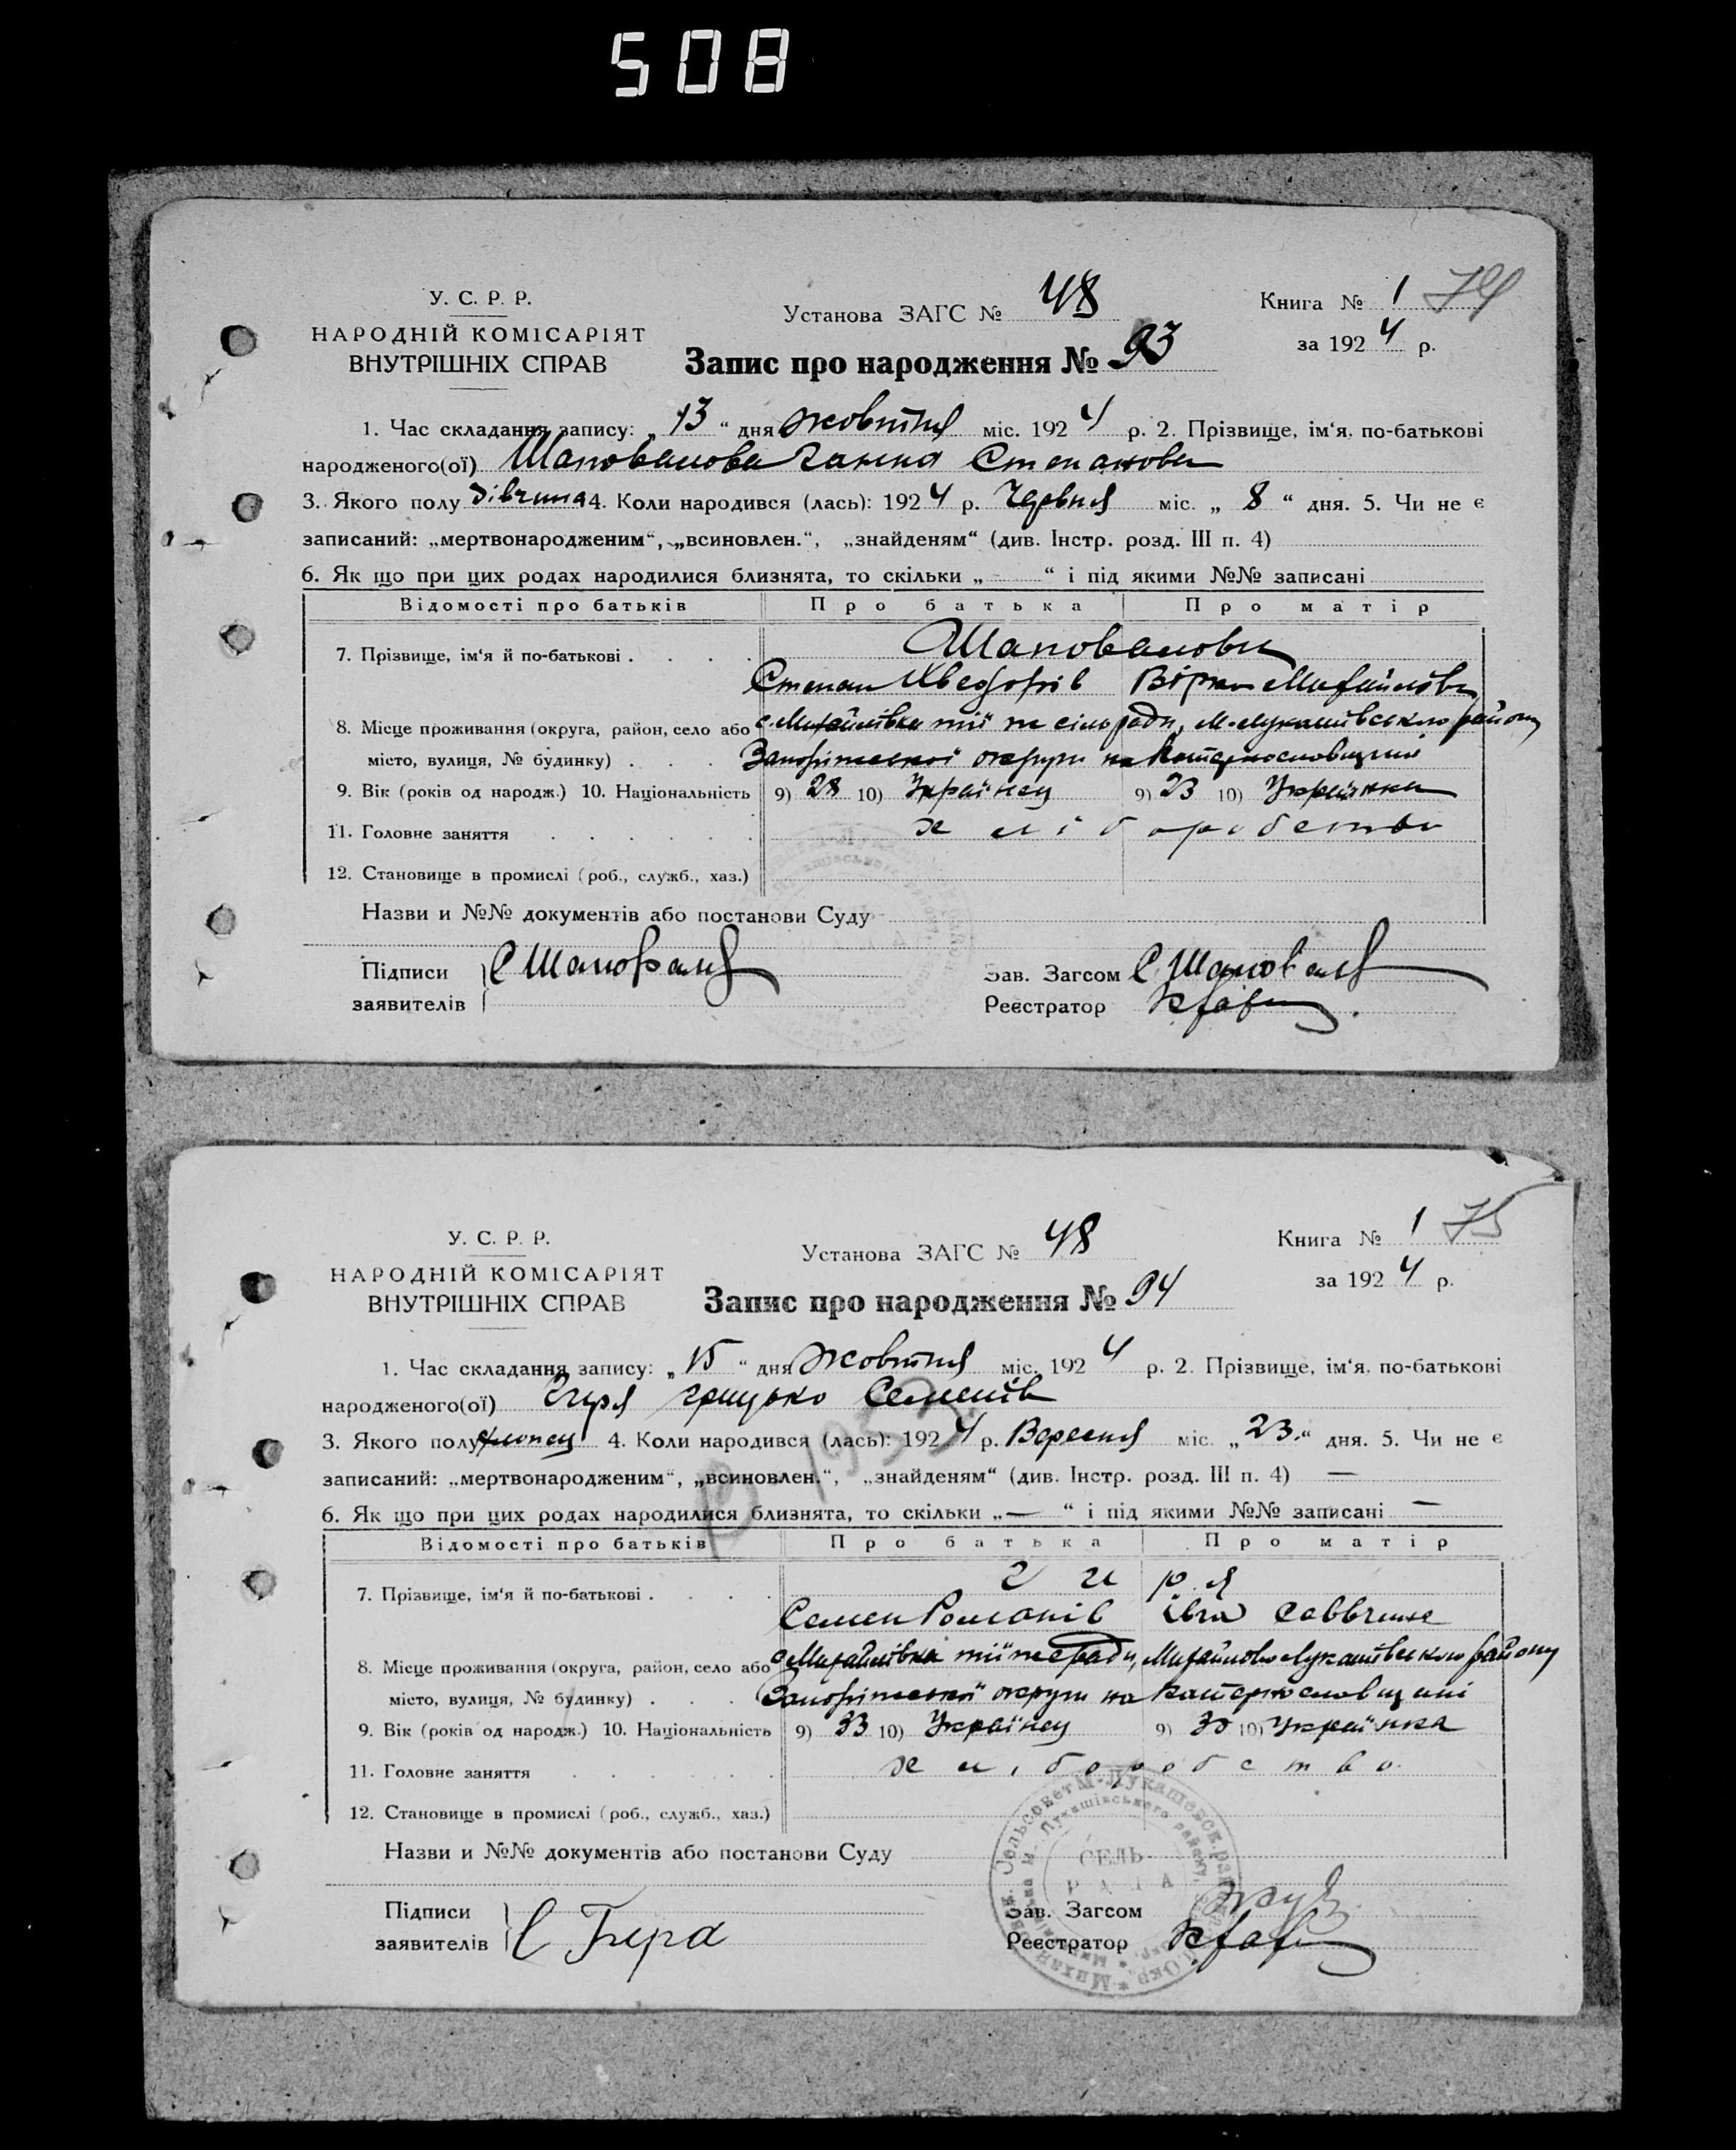 508
У. С. Р. Р.
НАРОДНІЙ КОМІСАРІЯТ
ВНУТРІШНІХ СПРАВ
Установа ЗАГС № 48
Книга № 1 74
за 1924 р.
Запис про народження № 93
1. Час складання запису: „13“ дня жовтня міс. 1924 р. 2. Прізвище, ім‘я, по-батькові
народженого(ої) Шаповалова Ганна Степанова
3. Якого полу дівчина 4. Коли народився (лась): 1924 р. Червня міс. „ 8 “ дня. 5. Чи не є
записаний: „мертвонародженим“, „всиновлен.“, „знайденям“ (див. Інстр. розд. III п. 4)
6. Як що при цих родах народилися близнята, то скільки „ “ і під якими №№ записані
Відомості про батьків Про батька Про матір
7. Прізвище, ім‘я й по-батькові . . . . Шаповалови
Степан Хведорів Вірка Михайлівна
8. Місце проживання (округа, район, село або с. Михайлівка тії ж сільради, М-Лукашівського району
місто, вулиця, № будинку) . . . Запоріжської округи на Катеринославщині
9. Вік (років од народж.) 10. Національність 9) 28 10) Українец 9) 23 10) Українка
11. Головне заняття . . . . . . хліборобство
12. Становище в промислі (роб., служб., хаз.)
Назви и №№ документів або постанови Суду
Підписи С Шаповал Зав. Загсом С. Шаповал
заявителів Реєстратор
У. С. Р. Р.
НАРОДНІЙ КОМІСАРІЯТ
ВНУТРІШНІХ СПРАВ
Установа ЗАГС № 48
Книга № 1 75
за 1924 р.
Запис про народження № 94
1. Час складання запису: „15“ дня Жовтня міс. 1924 р. 2. Прізвище, ім‘я, по-батькові
народженого(ої) Гиря Грицько Семенів
3. Якого полу хлопец 4. Коли народився (лась): 1924 р. Вересня міс. „23.“ дня. 5. Чи не є
записаний: „мертвонародженим“, „всиновлен.“, „знайденям“ (див. Інстр. розд. III п. 4) —
6. Як що при цих родах народилися близнята, то скільки „—“ і під якими №№ записані —
Відомості про батьків Про батька Про матір
7. Прізвище, ім‘я й по-батькові . . . . Гиря
Семен Романів Івга Саввична
8. Місце проживання (округа, район, село або с Михайлівка тії ж ради, Михайлово Лукашівського району
місто, вулиця, № будинку) . . . Запоріжської округи на Катеринославщині
9. Вік (років од народж.) 10. Національність 9) 33 10) Українец 9) 30 10) Українка
11. Головне заняття . . . . . . хліборобство.
12. Становище в промислі (роб., служб., хаз.)
Назви и №№ документів або постанови Суду
СЕЛЬ-
РАДА
Підписи С Гира Зав. Загсом
заявителів Реєстратор